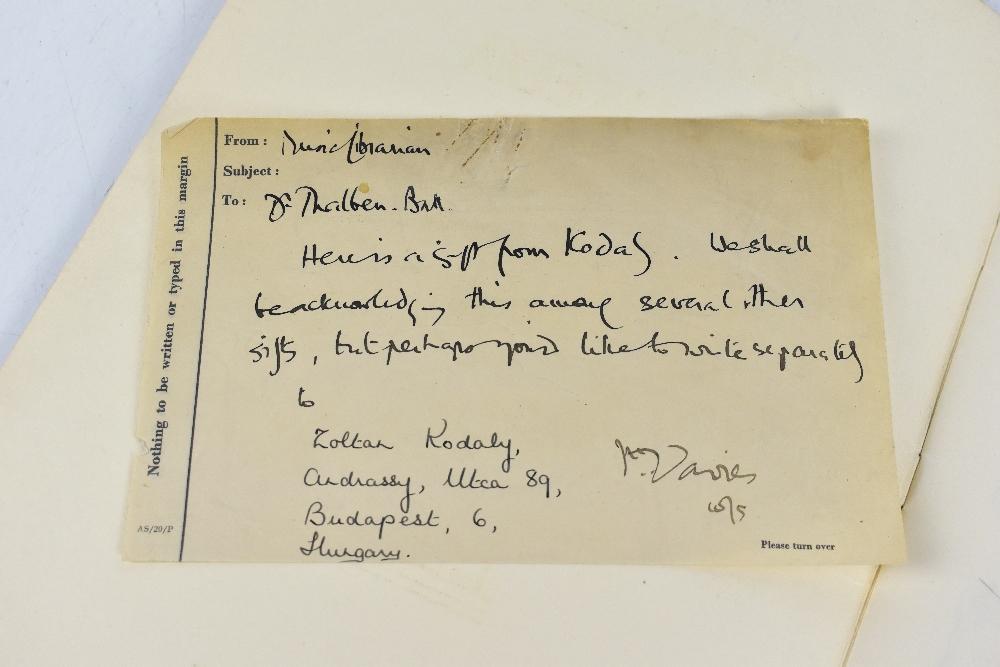 Nothing to be written or typed in this margin
From: Music Librarian
Subject:
To: Dr. Thalben-Ball.
Here is a gift from Kodaly. We shall
be acknowledging this among several other
gifts, but perhaps you'd like to write separately
to
Zoltan Kodaly,
Andrassy, Utca 89,
Budapest, 6,
Hungary.
Davies
AS/20/P
Please turn over